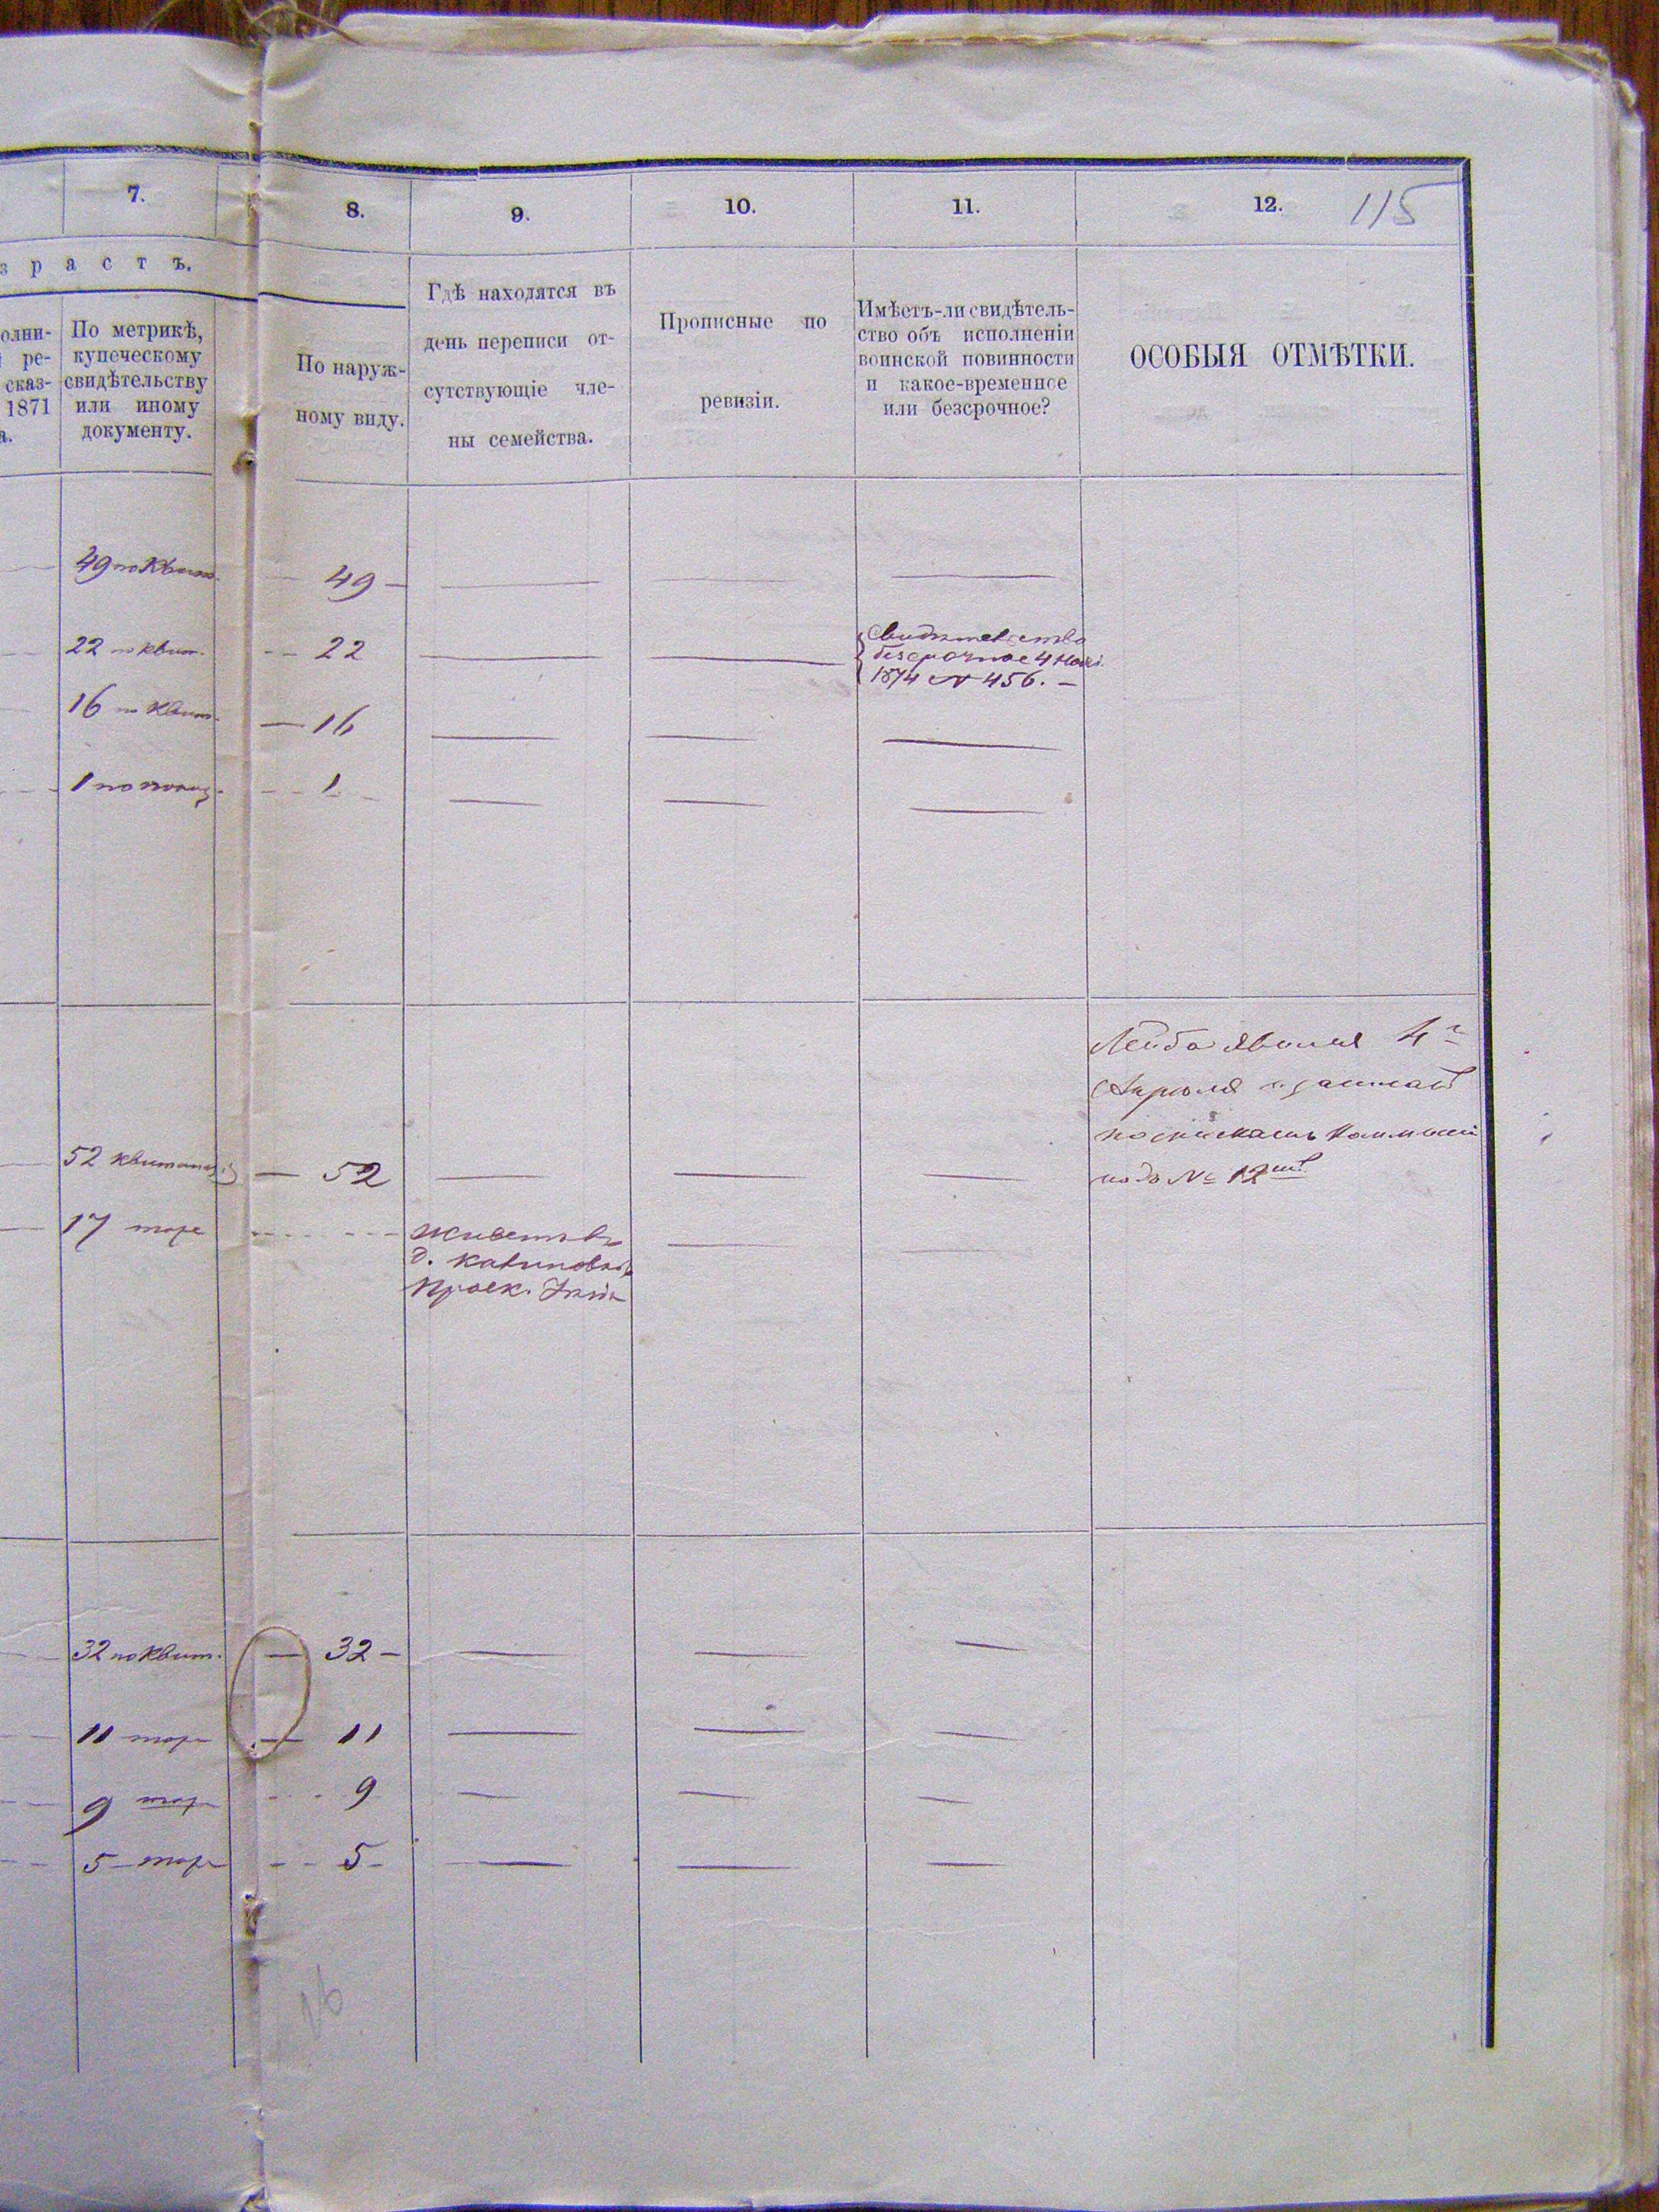 7. 8. 9. 10. 11. 12. 115
з р а с т ъ.
олни-
ре-
сказ-
1871
а.
По метрикѣ,
купеческому
свидѣтельству
или иному
документу.
По наруж-
ному виду.
Гдѣ находятся въ
день переписи от-
сутствующіе чле-
ны семейства.
Прописные по
ревизіи.
Имѣетъ-ли свидѣтель-
ство объ исполненіи
воинской повинности
и какое-временное
или безсрочное?
ОСОБЫЯ ОТМѢТКИ.
49 по Квит. — 49 —
22 по квит. — 22
Свидѣтельство
безсрочное 4 Нояб.
1874 № 456. —
16 по Квит. — 16
1 по 1
Лейба явился 4г
Апрѣля
подъ № 12
52 квитанц — 52
17 тоже
живетъ въ
д.
32 по Квит. — 32 —
11 тоже — 11
9 тоже 9
5 — тоже 5 —
16